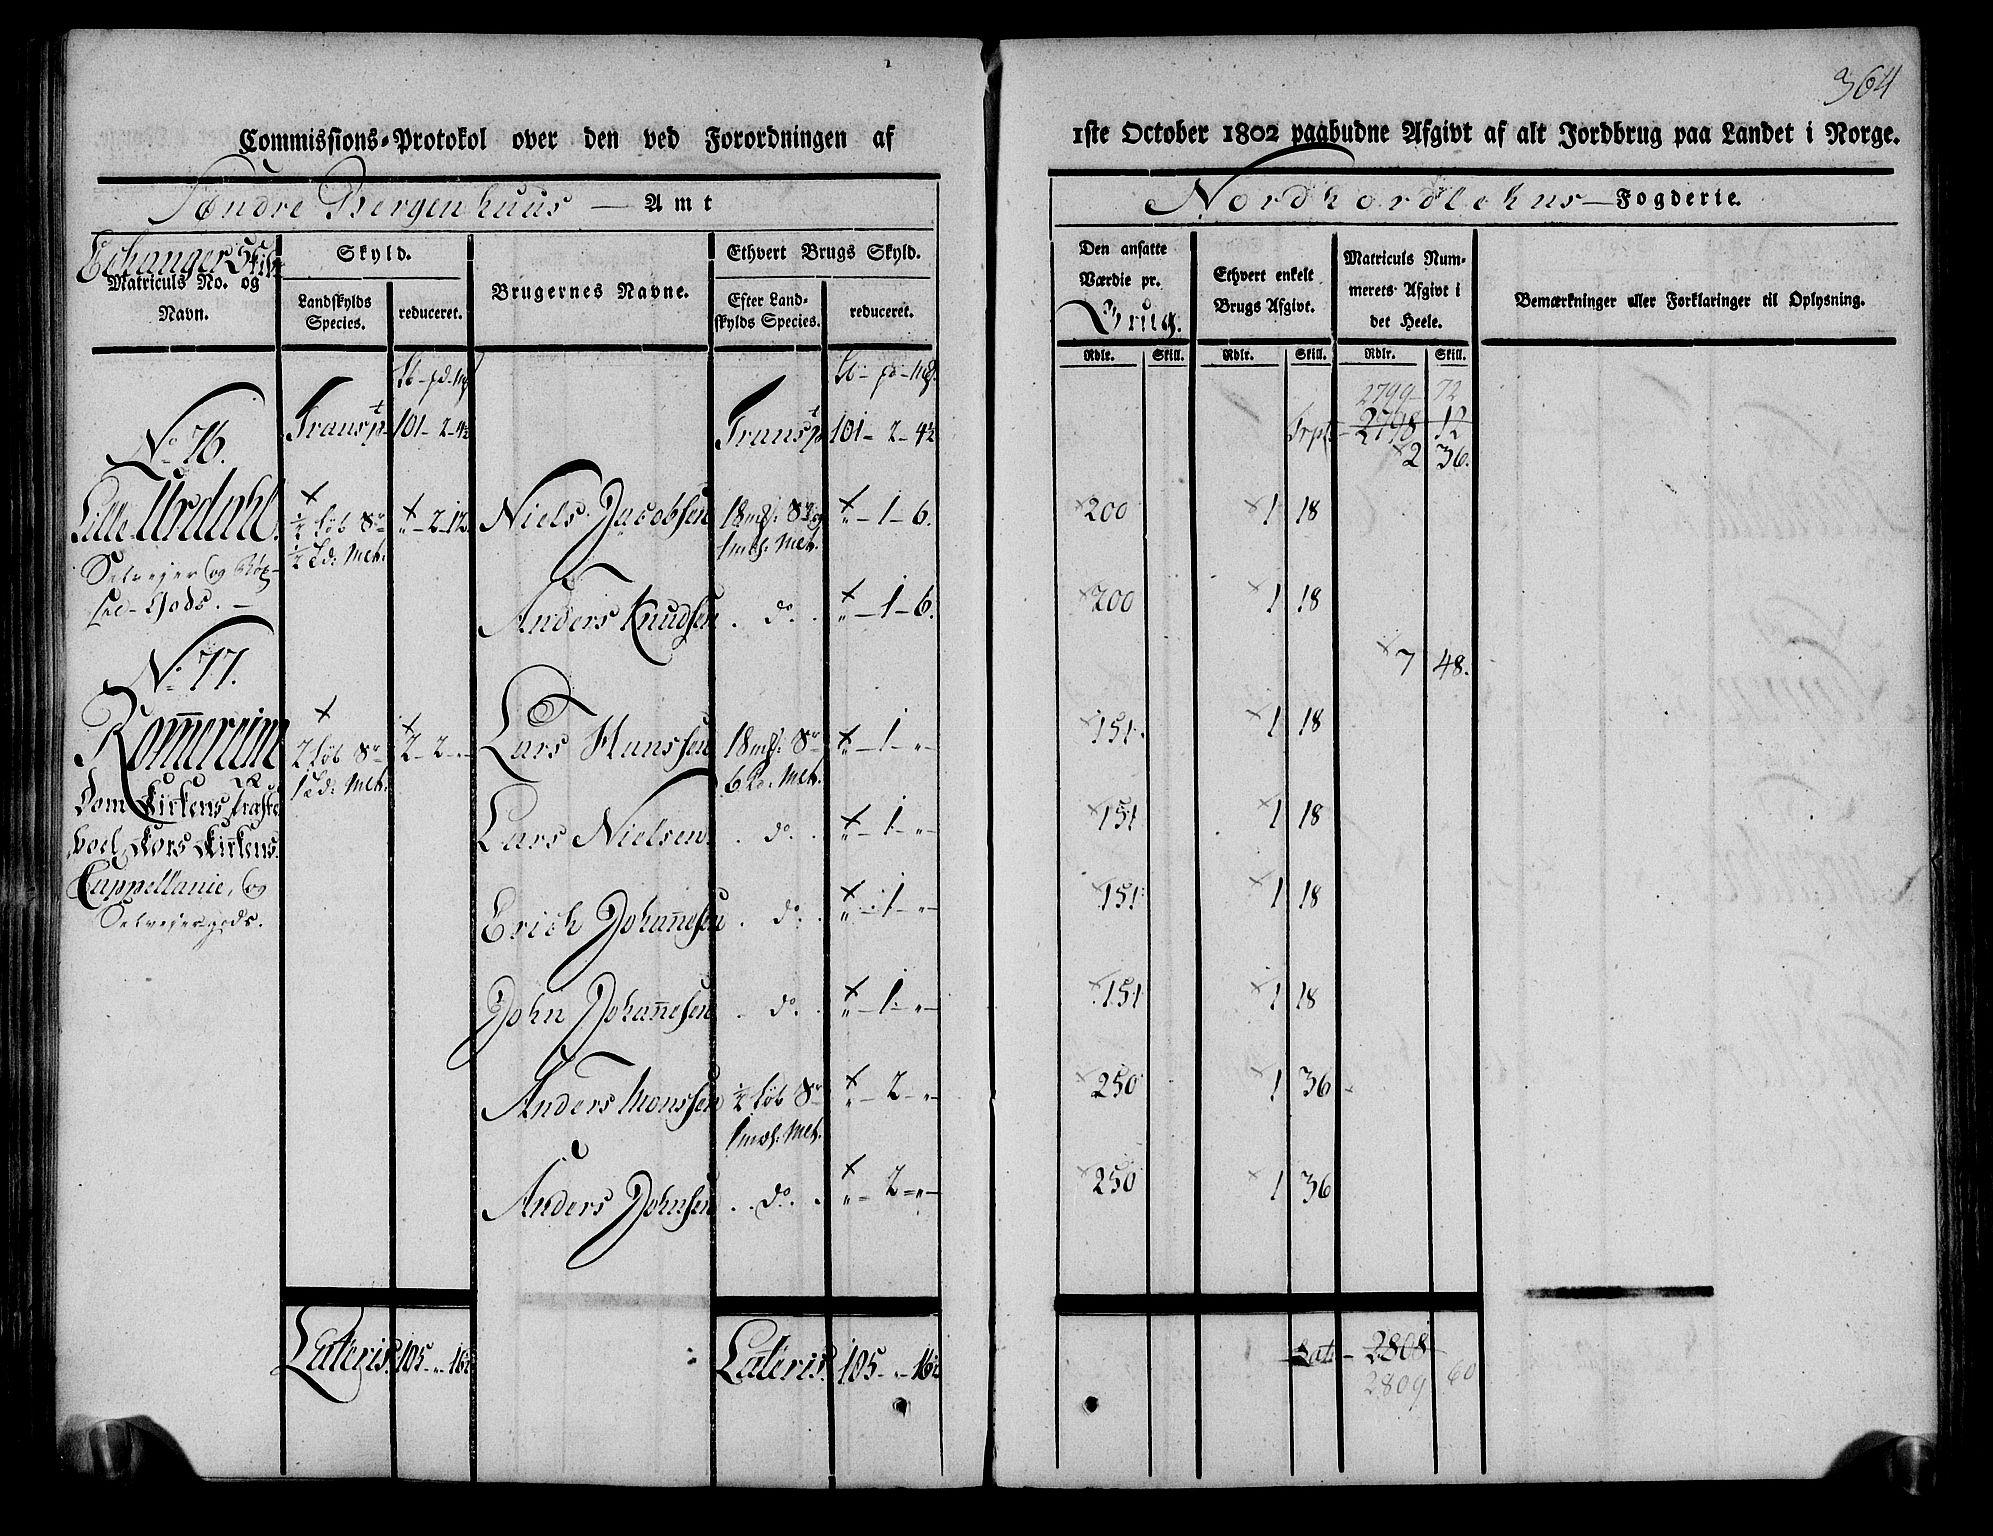 364
Commissions-Protokol over den ved Forordningen af
1ste October 1802 paabudne Afgivt af alt Jordbrug paa Landet i Norge.
Søndre Bergenhuus — Amt
Nordhordlehns — Fogderie.
Echanger
Matriculs No. og Navn.
Skyld.
Landskylds Species.
reduceret.
Brugernes Navne.
Ethvert Brugs Skyld.
Efter Landskylds Species.
reduceret.
Den ansatte Værdie pr. Brug.
Ethvert enkelt Brugs Afgivt.
Matriculs Nummerets Afgivt i det Heele.
Bemærkninger eller Forklaringer til Oplysning.
Rdlr. Skill. Rdlr. Skill. Rdlr. Skill.
2799 72
Transpt 101-2-4½ Transpt 101-2-4½ Trpt 2798 12
No. 76. 2 36.
Lille Urdahl. ½ Løb Sr - „-2-12. Niels Jacobsen 18 mk: Sr og „-1-6. 200 1 18
½ Td: Mel. 1 mæl: Mel.
Selvejer og
Gods. — Anders Knudsen . do. . „-1-6. 200 1 18
No. 77. 7 48.
Rommereim 2 Løb Sr 2-2-„- Lars Hanssen 18 mk: Sr „-1-„- 151. 1 18
1 Td: Mel. 6 Kd. Mel.
Dom Kirkens Præste
boel, Kors Kirkens Lars Nielsen . do. . „-1-„- 151 1 18
Cappellanie, og
Selvejergods. Erich Johannesen . do. . „-1-„- 151 1 18
John Johannesen . do. . „-1-„- 151 1 18
Anders Monssen ½ Løb Sr „-2-„- 250 1 36
1 mæl: Mel.
Anders Johnsen . . do. . „-2-„- 250 1 36
Lateris 105-„-16½ Lateris. 105-„-16½ Lat: 2808
2809 60